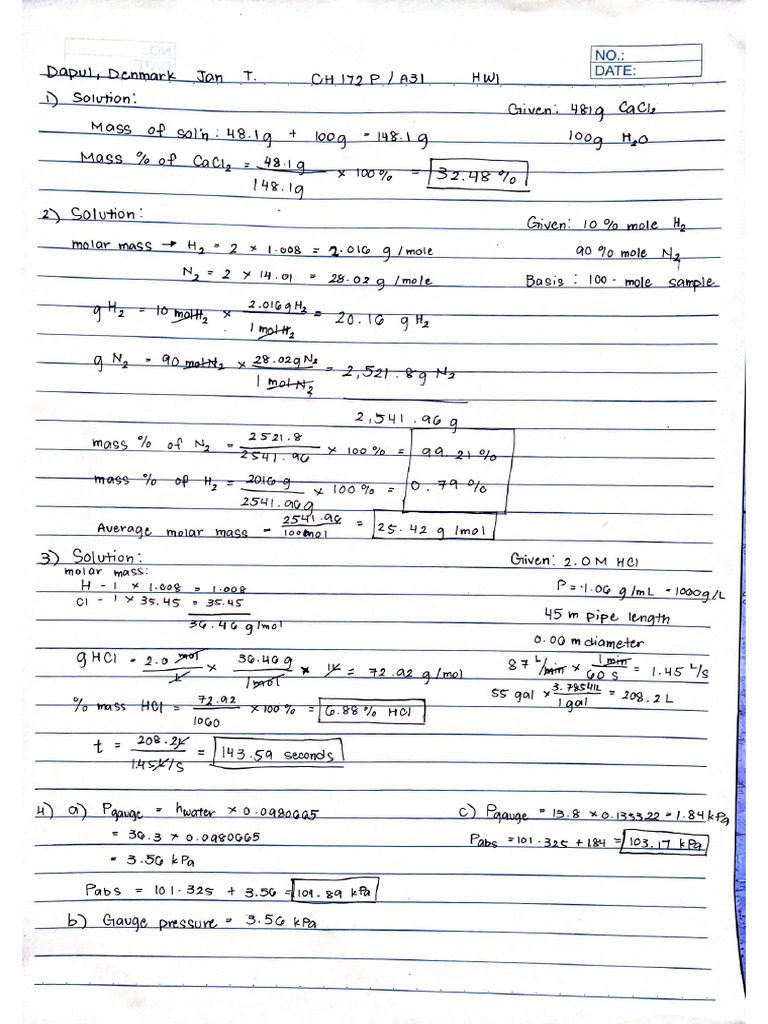 NO.:
DATE:
Dapul, Denmark Jan T. CH172P / A31 HW1
1) Solution: Given: 481g CaCl₂
Mass of sol'n: 48.1g + 100g = 148.1g 100g H₂O
Mass % of CaCl₂ = 48.1g / 148.1g × 100% = 32.48%
2) Solution: Given: 10% mole H₂
molar mass → H₂ = 2 × 1.008 = 2.016 g/mole 90% mole N₂
N₂ = 2 × 14.01 = 28.02 g/mole Basis: 100-mole sample
g H₂ = 10 mol H₂ × 2.016g H₂ / 1 mol H₂ = 20.16 g H₂
g N₂ = 90 mol N₂ × 28.02g N₂ / 1 mol N₂ = 2,521.8g N₂
2,541.96 g
mass % of N₂ = 2521.8 / 2541.96 × 100% = 99.21%
mass % of H₂ = 2016 g / 2541.96g × 100% = 0.79%
Average molar mass = 2541.96 / 100mol = 25.42 g/mol
3) Solution: Given: 2.0 M HCl
molar mass:
H - 1 × 1.008 = 1.008 P = 1.06 g/mL - 1000g/L
Cl - 1 × 35.45 = 35.45
36.46 g/mol 45 m pipe length
0.06 m diameter
g HCl = 2.0 mol / L × 36.46g / 1 mol × 1L = 72.92 g/mol 87 L/min × 1 min / 60 s = 1.45 L/s
% mass HCl = 72.92 / 1060 × 100% = 6.88% HCl 55 gal × 3.7854L / 1 gal = 208.2 L
t = 208.2L / 1.45L/s = 143.59 seconds
4) a) Pgauge = hwater × 0.0980665 c) Pgauge = 13.8 × 0.133322 = 1.84 kPa
= 36.3 × 0.0980665 Pabs = 101.325 + 184 = 103.17 kPa
= 3.56 kPa
Pabs = 101.325 + 3.56 = 101.89 kPa
b) Gauge pressure = 3.56 kPa